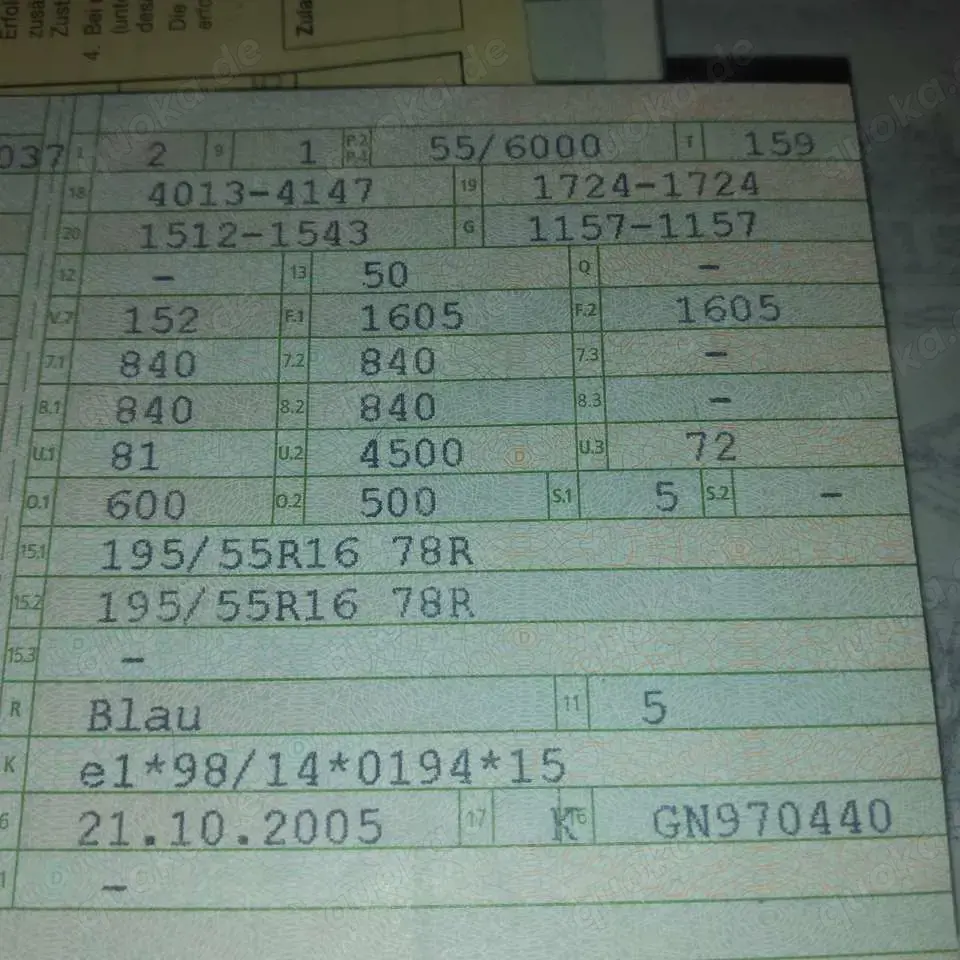 Erfol
zusä
Zust
4. Bei
(unte
des
Die
erfo
Zula
037 L 2 9 1 P.2 P.4 55/6000 T 159
18 4013-4147 19 1724-1724
20 1512-1543 G 1157-1157
12 – 13 50 Q –
V.7 152 F.1 1605 F.2 1605
7.1 840 7.2 840 7.3 –
8.1 840 8.2 840 8.3 –
U.1 81 U.2 4500 U.3 72
O.1 600 O.2 500 S.1 5 S.2 –
15.1 195/55R16 78R
15.2 195/55R16 78R
15.3 –
R Blau 11 5
K e1*98/14*0194*15
6 21.10.2005 17 K 16 GN970440
1 –
quoka.de